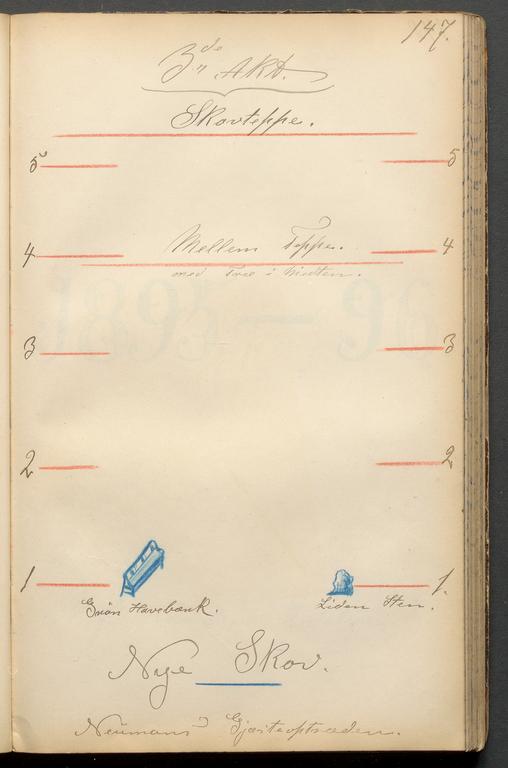 147.
3de Akt.
Skovteppe.
5 5
4 Mellem Teppe. 4
med Træ i Midten.
3 3
2 2
1 1.
Grön Havebænk. Liden Sten.
Nye Skov.
Neumans Gjæsteoptræden.